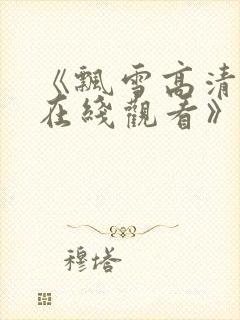 《飄雪高清
在綫觀看》
穆塔